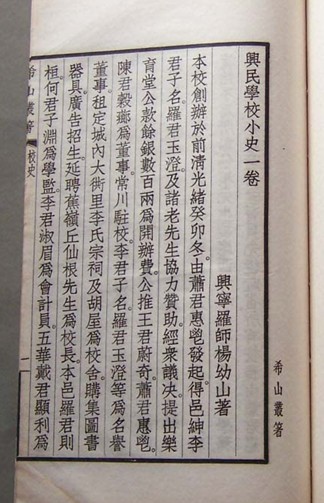 興民學校小史一卷
興寧羅師楊幼山著
本校創辦於前清光緒癸卯冬。由蕭君惠䰾發起得邑紳李
君子名。羅君玉澄。及諸老先生協力贊助。經衆議决。提出樂
育堂公欵餘銀數百兩爲開辦費。公推王君蔚奇。蕭君惠䰾。
陳君穀薌爲董事。常川駐校。李君子名。羅君玉澄等爲名譽
董事。租定城內大衖里李氏宗祠及胡屋爲校舍。購集圖書
器具。廣告招生。延聘蕉嶺丘仙根先生爲校長。本邑羅君則
桓何君子淵爲學監。李君淑眉爲會計員。五華戴君顯利爲
希山叢著
校史
一
希山叢著